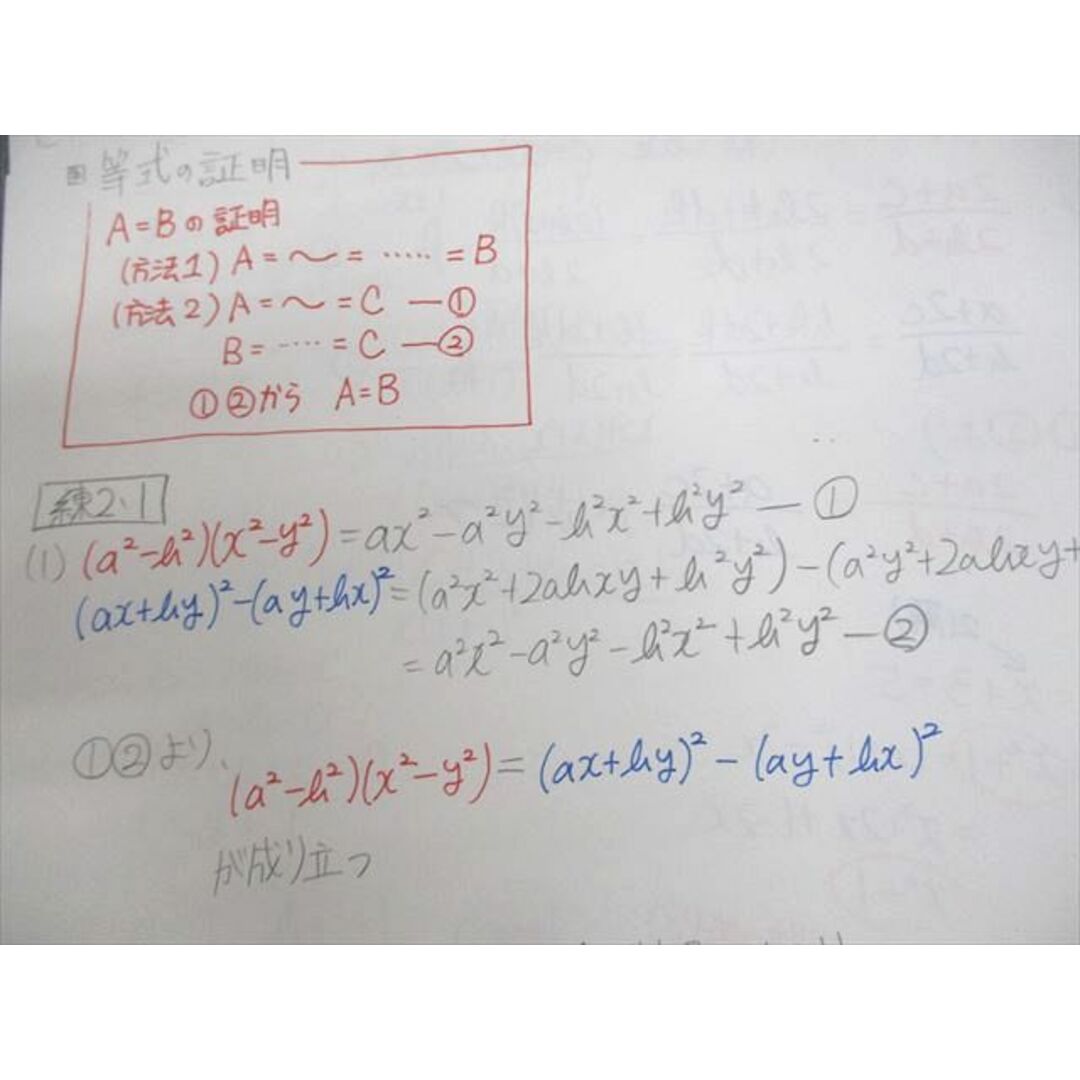 等式の証明
A=Bの証明
(方法1) A=〜=……=B
(方法2) A=〜=C ー①
B=……=C ー②
①②から A=B
練2・1
(1) (a²-b²)(x²-y²)=ax²-a²y²-b²x²+b²y² ー①
(ax+by)²-(ay+bx)²=(a²x²+2abxy+b²y²)-(a²y²+2abxy+
=a²x²-a²y²-b²x²+b²y² ー②
①②より、
(a²-b²)(x²-y²)=(ax+by)²-(ay+bx)²
が成り立つ